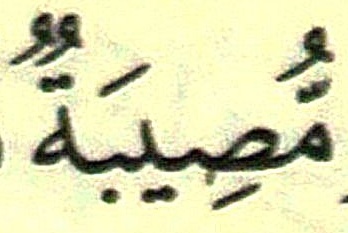 مُّصِيبَةٌ